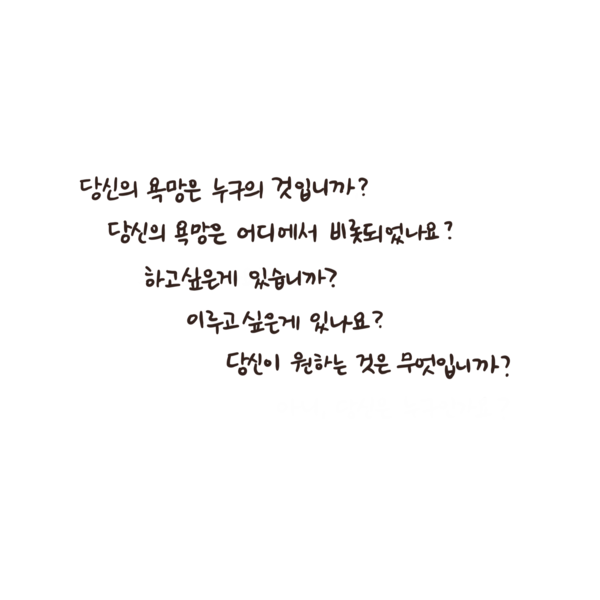 당신의 욕망은 누구의 것입니까?
당신의 욕망은 어디에서 비롯되었나요?
하고싶은게 있습니까?
이루고싶은게 있나요?
당신이 원하는 것은 무엇입니까?